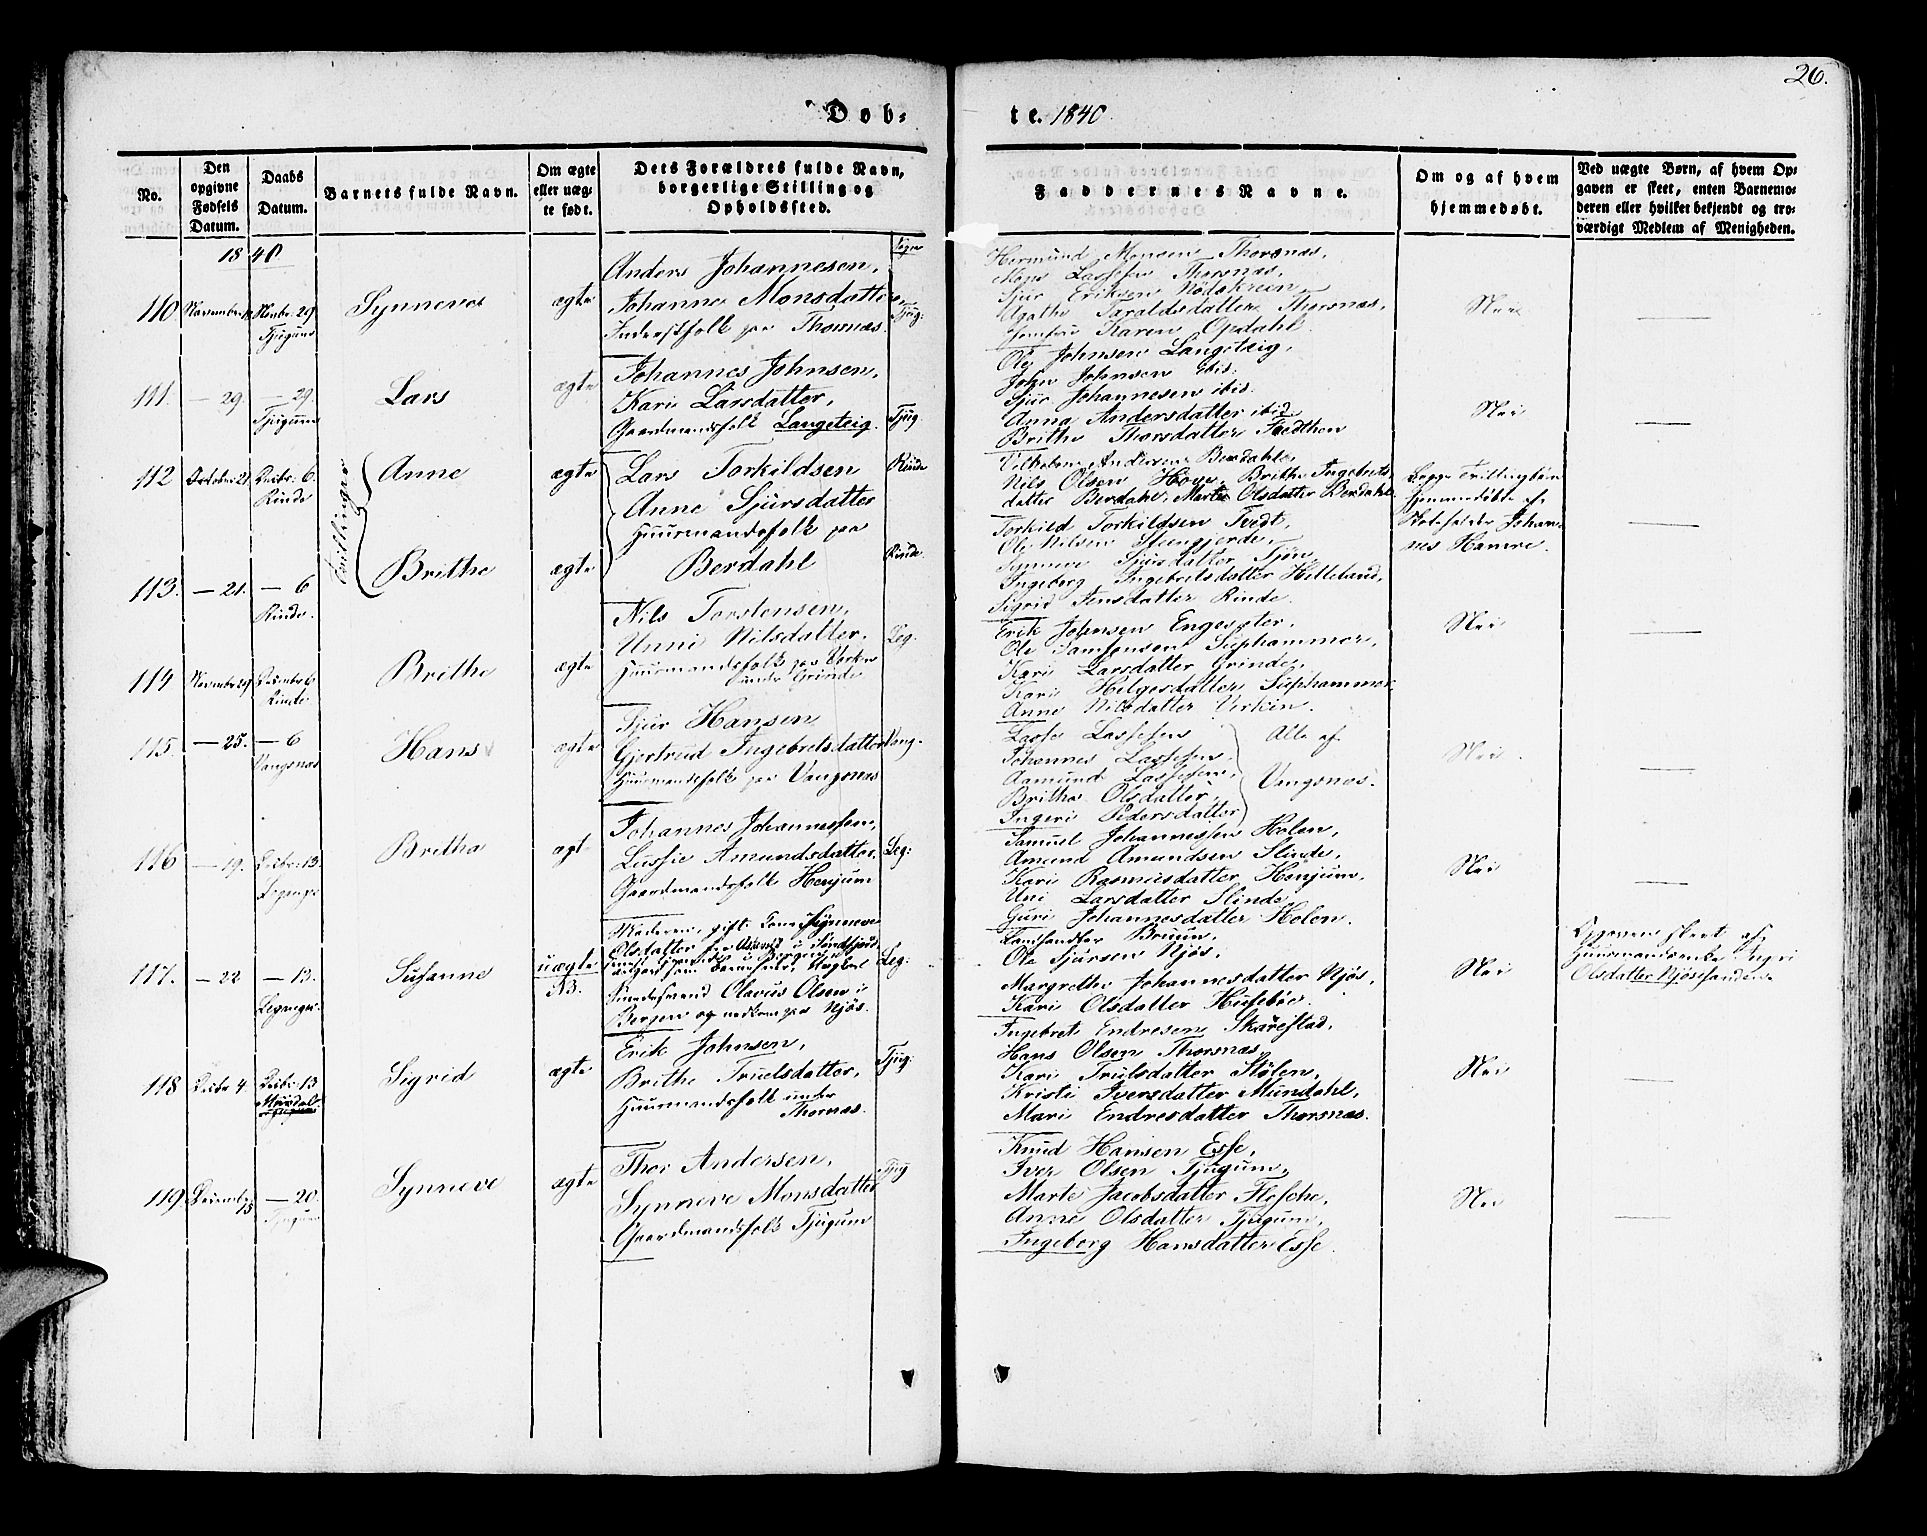 26.
Døb-
te. 1840
No.
Den opgivne Fødsels Datum.
Daabs Datum.
Barnets fulde Navn.
Om ægte eller uæg-
te født.
Dets Forældres fulde Navn,
borgerlige Stilling og
Opholdssted.
Sogn
Faddernes Navne.
Om og af hvem
hjemmedøbt.
Ved uægte Børn, af hvem Op-
gaven er skeet, enten Barnemo-
deren eller hvilket bekjendt og tro-
værdigt Medlem af Menigheden.
1840
110 Novembr. Novbr. 29. Tjugum Synneve ægte
Anders Johannesen,
Johanne Monsdatter
Inderstfolk paa Thorsnæs.
Tjug:
Hermund Monsen Thorsnæs,
Mons Lassesen Thorsnæs,
Sjur Eriksen Nødskrein,
Agathe Taraldsdatter Thorsnæs,
Jomfru Karen Opdahl.
Nei
111. — 29. — 29. Tjugum Lars ægte
Johannes Johnsen,
Kari Larsdatter,
Gaardmandsfolk Langeteig.
Tjug.
Ole Johnsen Langeteig,
John Johnsen ibid.
Sjur Johannesen ibid.
Anna Andersdatter ibid
Brithe Thorsdatter Fedthen
Nei
Tvillinger
112 October 21 Decbr. 6. Rinde Anne ægte
Lars Torkildsen
Anne Sjursdatter
Huusmandsfolk paa
Berdahl
Rinde
Andersen Berdahl,
Nils Olsen Hove, Brithe Ingebrets-
datter Berdahl, Marte Olsdatter Berdahl
Begge Tvillingbørn
hjemmedøbte af
Skoleholder Johan-
nes Hamre.
113. — 21. — 6 Rinde. Brithe ægte
Rinde
Torkild Torkildsen Tvedt,
Ole Nilsen Steengjerde,
Synneve Sjursdatter Tjøn,
Ingeborg Ingebretsdatter Helleland,
Sigrid Jensdatter Rinde.
114 Novembr. 29 Decembr. 6 Rinde Brithe ægte
Nils Torstensen,
Unni Nilsdatter,
Huusmandsfolk paa Verken
under Grinde
Leg.
Erik Johnsen Engesæter,
Ole Samsonsen Suphammer,
Kari Larsdatter Grinde,
Kari Helgesdatter Suphammer,
Anne Nilsdatter Verkin.
Nei
115. — 25. — 6 Vangsnæs Hans ægte
Sjur Hansen
Gjertrud Ingebretsdatter
Huusmandsfolk paa Vangsnæs
Vang.
Lasse Lassesen
Johannes Lassesen,
Aamund Lassesen,
Britha Olsdatter,
Ingeri Pedersdatter
Alle af
Vangsnæs.
Nei.
116 — 19. Decbr: 13. Leganger Britha ægt
Johannes Johannessen,
Lussie Amundsdatter,
Gaardmandsfolk Henjum
Leg:
Samuel Johannessen Holen,
Amund Amundsen Slinde,
Kari Rasmusdatter Henjum,
Uni Larsdatter Slinde,
Guri Johannesdatter Holen.
Nei
117. — 22 — 13. Leganger. Susanne uægte NB.
Moderen, gift Kone Synneve
Olsdatter fra Askvold i Søndfjord
Olavus Olsen i
Bergen og nedkom paa Njøs.
Leg:
Landhandler Bruun,
Ole Sjursen Njøs,
Margrethe Johannesdatter Njøs,
Kari Olsdatter Husebøe.
Nei
Opgaven skeet af
Huusmandsenke Ingri
Olsdatter Njøsesanden
118 Decbr 4 Decbr. 13 Sigrid ægte
Erik Johnsen,
Brithe Truelsdatter,
Huusmandsfolk under
Thorsnæs.
Tjug:
Ingebret Endresen Skarestad,
Hans Olsen Thorsnæs,
Kari Trulsdatter Stølen,
Kristi Iversdatter Mundahl,
Mari Endresdatter Thorsnæs.
Nei
119 Decembr 15 — 20. Tjugum Synneve ægte
Thor Andersen,
Synneve Monsdatter
Gaardmandsfolk Tjugum
Tjug
Knud Hansen Esse,
Iver Olsen Tjugum,
Marte Jacobsdatter Flesche,
Anne Olsdatter Tjugum,
Ingeborg Hansdatter Esse.
Nei